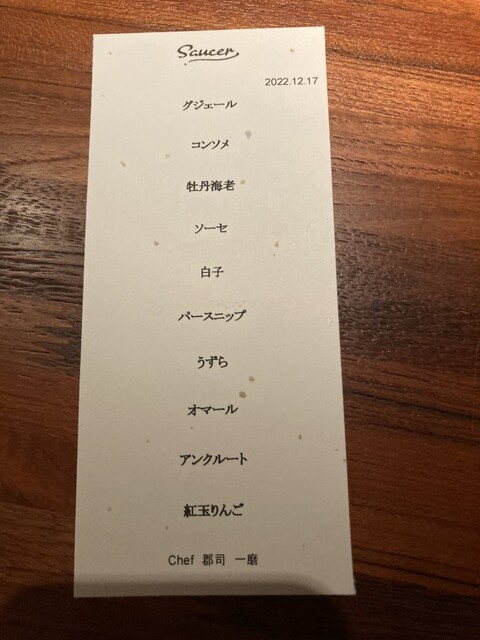 Saucer
2022.12.17
グジェール
コンソメ
牡丹海老
ソーセ
白子
パースニップ
うずら
オマール
アンクルート
紅玉りんご
Chef 郡司 一磨